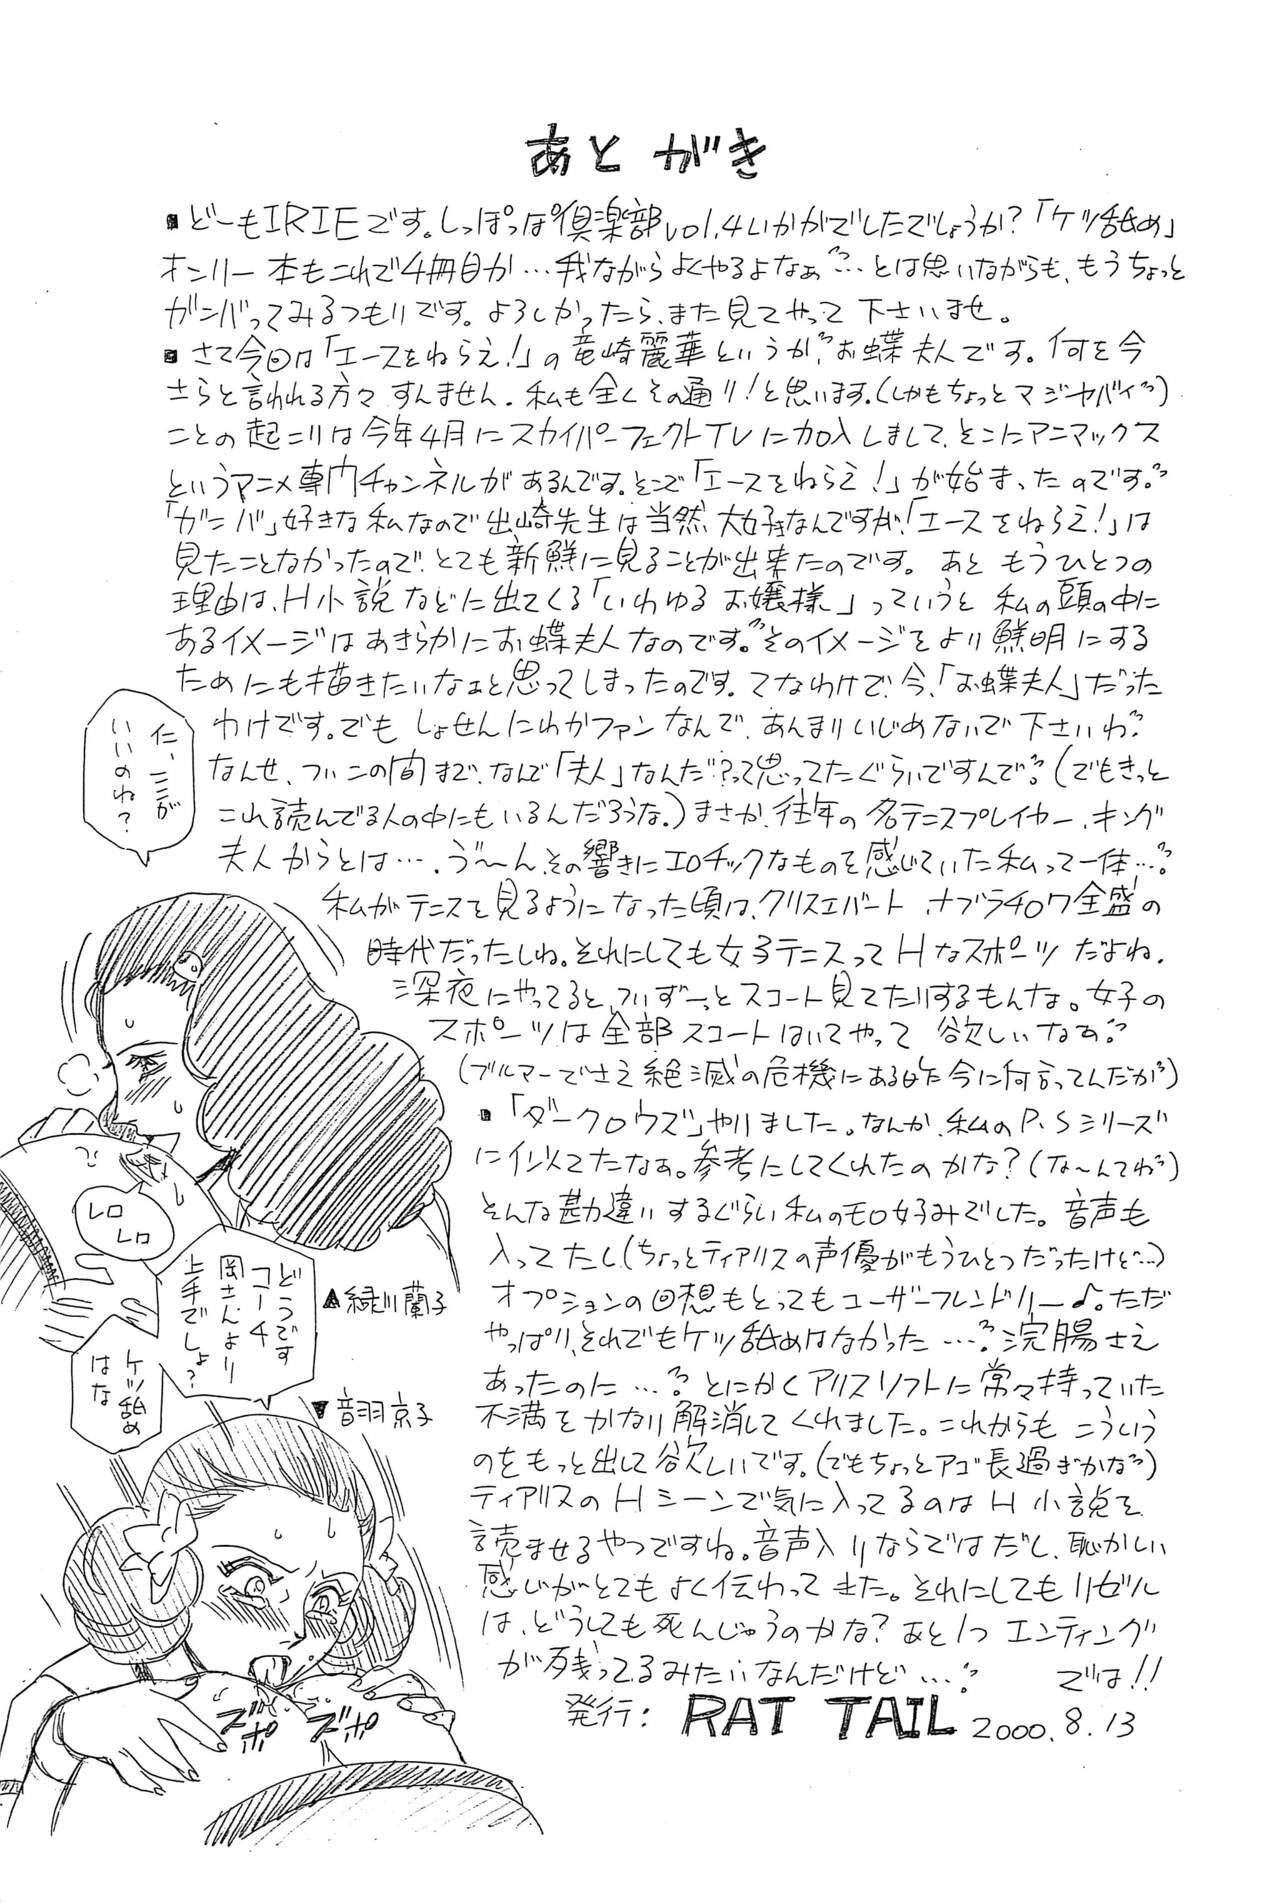 あとがき
▪どーもIRIEです。しっぽっぽ倶楽部vol.4いかがでしたでしょうか？「ケツ舐め」
オンリー本もこれで4冊目か…我ながらよくやるよなぁ…とは思いながらも、もうちょっと
ガンバってみるつもりです。よろしかったら、また見てやって下さいませ。
▪さて今回は「エースをねらえ！」の竜崎麗華というか、お蝶夫人です。何を今
さらと言われる方々すんません。私も全くその通り！と思います。（しかもちょっとマジヤバイ）
ことの起こりは今年4月にスカイパーフェクトTVに加入しまして、そこにアニマックス
というアニメ専門チャンネルがあるんです。そこで「エースをねらえ！」が始まったのです。
「ガンバ」好きな私なので出崎先生は当然大好きなんですが、「エースをねらえ！」は
見たことなかったので、とても新鮮に見ることが出来たのです。あと もうひとつの
理由は、H小説などに出てくる「いわゆるお嬢様」っていうと 私の頭の中に
あるイメージはあきらかにお蝶夫人なのです。そのイメージをより鮮明にする
ためにも描きたいなぁと思ってしまったのです。てなわけで、今、「お蝶夫人」だった
わけです。でも しょせんにわかファンなんで、あんまりいじめないで下さいね
なんせ、ついこの間まで、なんで「夫人」なんだ？って思ってたぐらいですんで。（でもきっと
これ読んでる人の中にもいるんだろうな。）まさか、往年の名テニスプレイヤー、キング
夫人からとは…。う〜ん、その響きにエロチックなものを感じていた私って一体…
私がテニスを見るようになった頃は、クリスエバート、ナブラチロワ全盛の
時代だったしね。それにしても女子テニスってHなスポーツだよね。
深夜にやってると、ついずーっとスコート見てたりするもんな。女子の
スポーツは全部スコートはいてやって欲しいなあ
（ブルマーでさえ絶滅の危機にある昨今に何言ってんだか）
▪「ダークロウズ」やりました。なんか、私のP.Sシリーズ
に似てたなぁ。参考にしてくれたのかな？（な〜んてね）
そんな勘違いするぐらい私のモロ好みでした。音声も
入ってたし（ちょっとティアリスの声優がもうひとつだったけど…）
オプションの回想もとってもユーザーフレンドリー♪。ただ
やっぱり、それでもケツ舐めはなかった…。浣腸さえ
あったのに…。とにかくアリスソフトに常々持っていた
不満をかなり解消してくれました。これからもこういう
のをもっと出して欲しいです。（でもちょっとアゴ長過ぎかな）
ティアリスのHシーンで気に入ってるのはH小説を
読ませるやつですね。音声入りならではだし、恥かしい
感じがとてもよく伝わってきた。それにしてもリゼル
は、どうしても死んじゃうのかな？あと1つエンディング
が残ってるみたいなんだけど…。 では!!
▲緑川蘭子
▼音羽京子
発行：RAT TAIL 2000.8.13